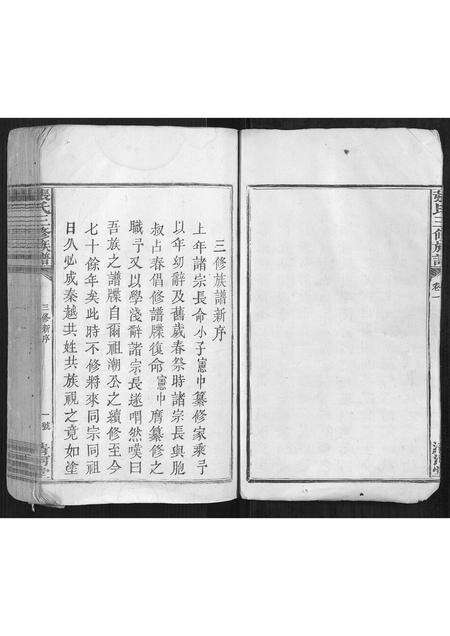 張氏三修族譜
卷一
清河堂
三修族譜新序
上年諸宗長命小子憲中纂修家乘予
以年幼辭及舊歲春祭時諸宗長與胞
叔占春倡修譜牒復命憲中膺纂修之
職予又以學淺辭諸宗長遂喟然嘆曰
吾族之譜牒自爾祖潮丞之續修至今
七十餘年矣此時不修將來同宗同祖
日久必咸秦越共姓共族視之竟如塗
張氏三修族譜
三修新序
一號
清河堂